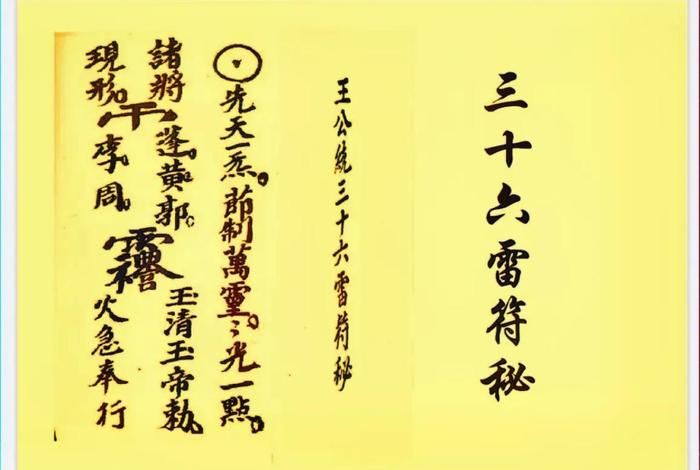 三十六雷符秘
王公統三十六雷符秘
先天一炁。節制萬靈。〻光一點。
諸將
現形。
蓬黃郭。
李周。
玉清玉帝勅
火急奉行